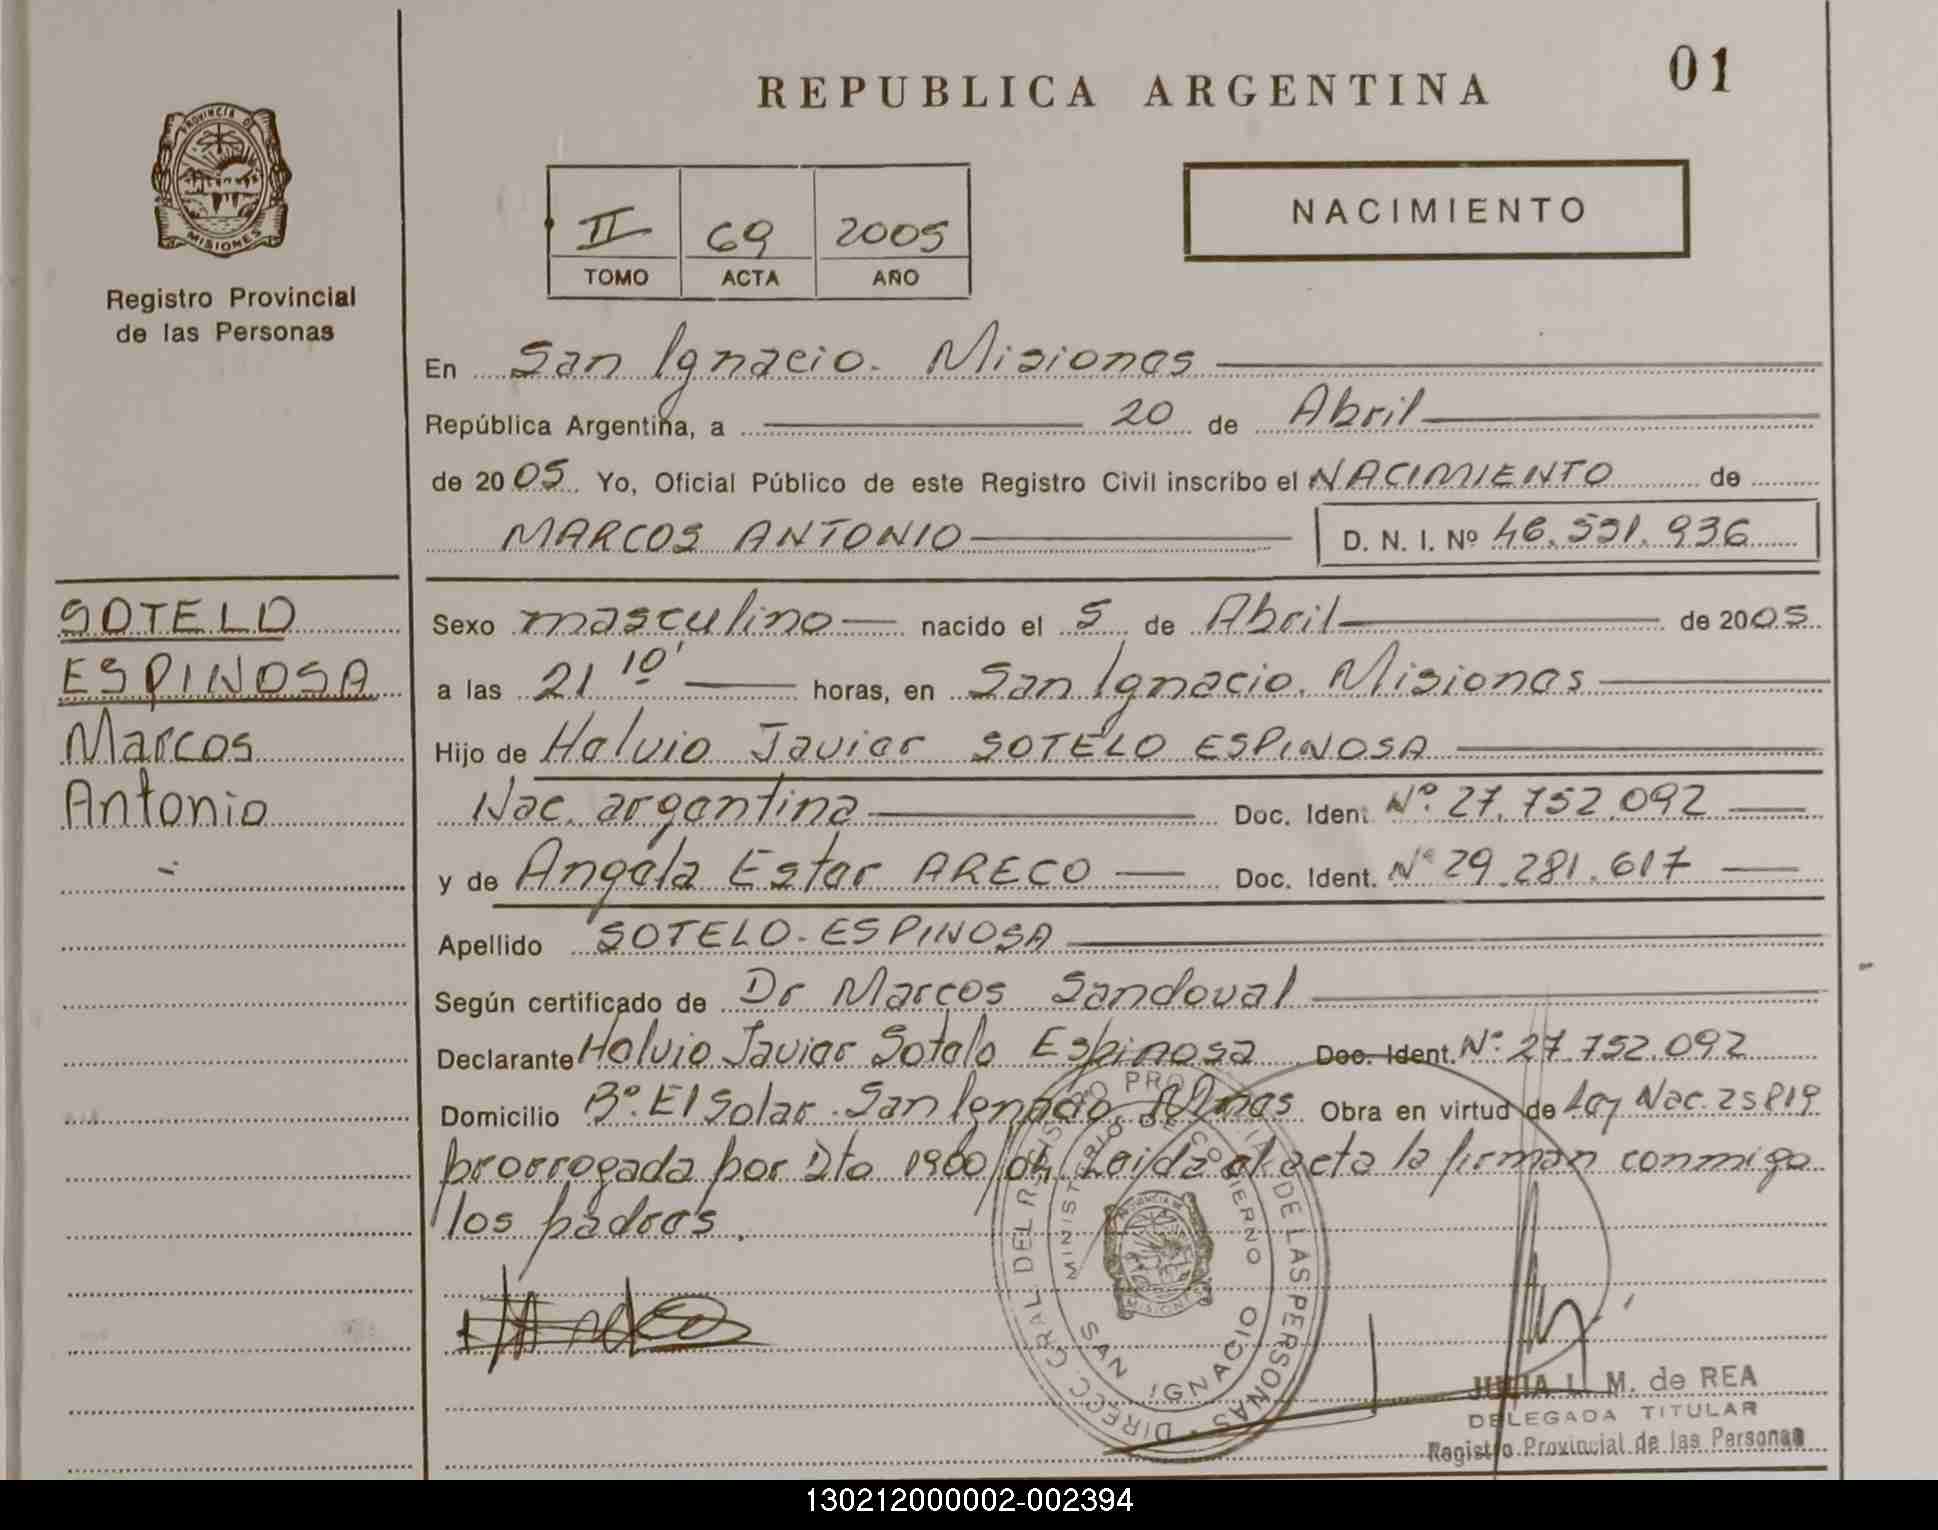 01
REPUBLICA ARGENTINA
PROVINCIA DE
MISIONES
Registro Provincial
de las Personas
NACIMIENTO
II 69 2005
TOMO ACTA AÑO
En San Ignacio. Misiones
República Argentina, a 20 de Abril
de 2005 Yo, Oficial Público de este Registro Civil inscribo el NACIMIENTO de
MARCOS ANTONIO D. N. I. Nº 46.531.936
SOTELO
ESPINOSA
Marcos
Antonio
Sexo masculino nacido el 5 de Abril de 2005
a las 21 10' horas, en San Ignacio. Misiones
Hijo de Helvio Javier SOTELO ESPINOSA
Nac. argentina Doc. Ident. Nº 27.752.092
y de Angela Ester ARECO Doc. Ident. Nº 29.281.617
Apellido SOTELO-ESPINOSA
Según certificado de Dr Marcos Sandoval
Declarante Helvio Javier Sotelo Espinosa Doc. Ident. Nº 27 752.092
Domicilio Bº. El Solar. San Ignacio. Mnes Obra en virtud de Ley Nac. 25819
prorrogada por Dto 1900/04. Leida el acta la firman conmigo
los padres.
DIREC. GRAL DEL REGISTRO PROVINCIAL DE LAS PERSONAS
MINISTERIO DE GOBIERNO
MISIONES
SAN IGNACIO
JULIA L. M. de REA
DELEGADA TITULAR
Registro Provincial de las Personas
130212000002-002394